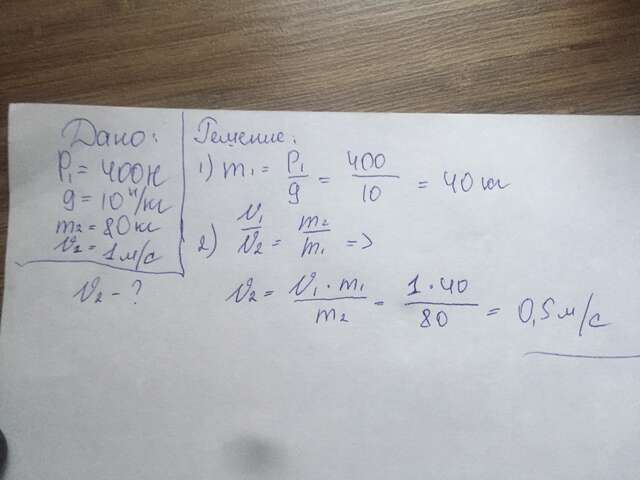 Дано:
P₁ = 400Н
g = 10 Н/кг
m₂ = 80 кг
v₂ = 1 м/с
v₂ - ?
Решение:
1) m₁ = P₁/g = 400/10 = 40 кг
2) v₁/v₂ = m₂/m₁ =>
v₂ = v₁·m₁/m₂ = 1·40/80 = 0,5 м/с